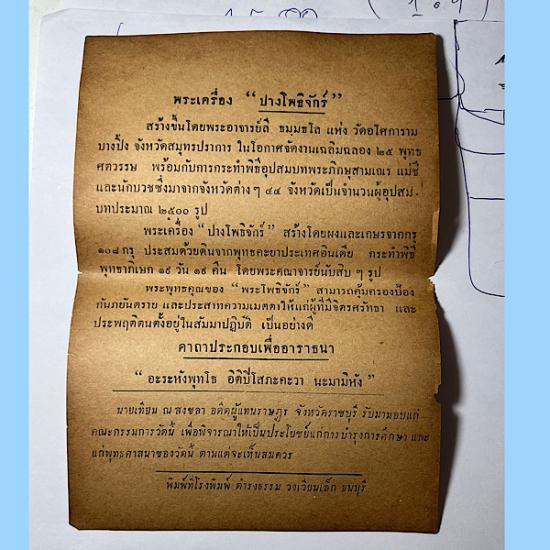 พระเครื่อง “ปางโพธิจักร์”
สร้างขึ้นโดยพระอาจารย์ลี ธมฺมธโล แห่ง วัดอโศการาม
บางปิ้ง จังหวัดสมุทรปราการ ในโอกาศจัดงานเฉลิมฉลอง ๒๕ พุทธ
ศตวรรษ พร้อมกับการกระทำพิธีอุปสมบทพระภิกษุสามเณร แม่ชี
และนักบวชซึ่งมาจากจังหวัดต่าง ๆ ๔๔ จังหวัดเป็นจำนวนผู้อุปสม-
บทประมาณ ๒๕๐๐ รูป
พระเครื่อง “ปางโพธิจักร์” สร้างโดยผงและเกษรจากกรุ
๑๐๘ กรุ ประสมด้วยดินจากพุทธคะยาประเทศอินเดีย กระทำพิธี
พุทธาภิเษก ๑๙ วัน ๑๙ คืน โดยพระคณาจารย์นับสิบ ๆ รูป
พระพุทธคุณของ “พระโพธิจักร์” สามารถคุ้มครองป้อง
กันภยันตราย และประสาทความเมตตาให้แก่ผู้ที่มีจิตรศรัทธา และ
ประพฤติตนตั้งอยู่ในสัมมาปฏิบัติ เป็นอย่างดี
คาถาประกอบเพื่ออาราธนา
“อะระหังพุทโธ อิติปิโสภะคะวา นะมามิหัง”
นายเทียม ณ สงขลา อดีตผู้แทนราษฎร จังหวัดราชบุรี รับมามอบแก่
คณะกรรมการวัดนี้ เพื่อพิจารณาให้เป็นประโยชน์แก่การบำรุงการศึกษา และ
แก่พุทธศาสนาของวัดนี้ ตามแต่จะเห็นสมควร
พิมพ์ที่โรงพิมพ์ ดำรงธรรม วงเวียนเล็ก ธนบุรี